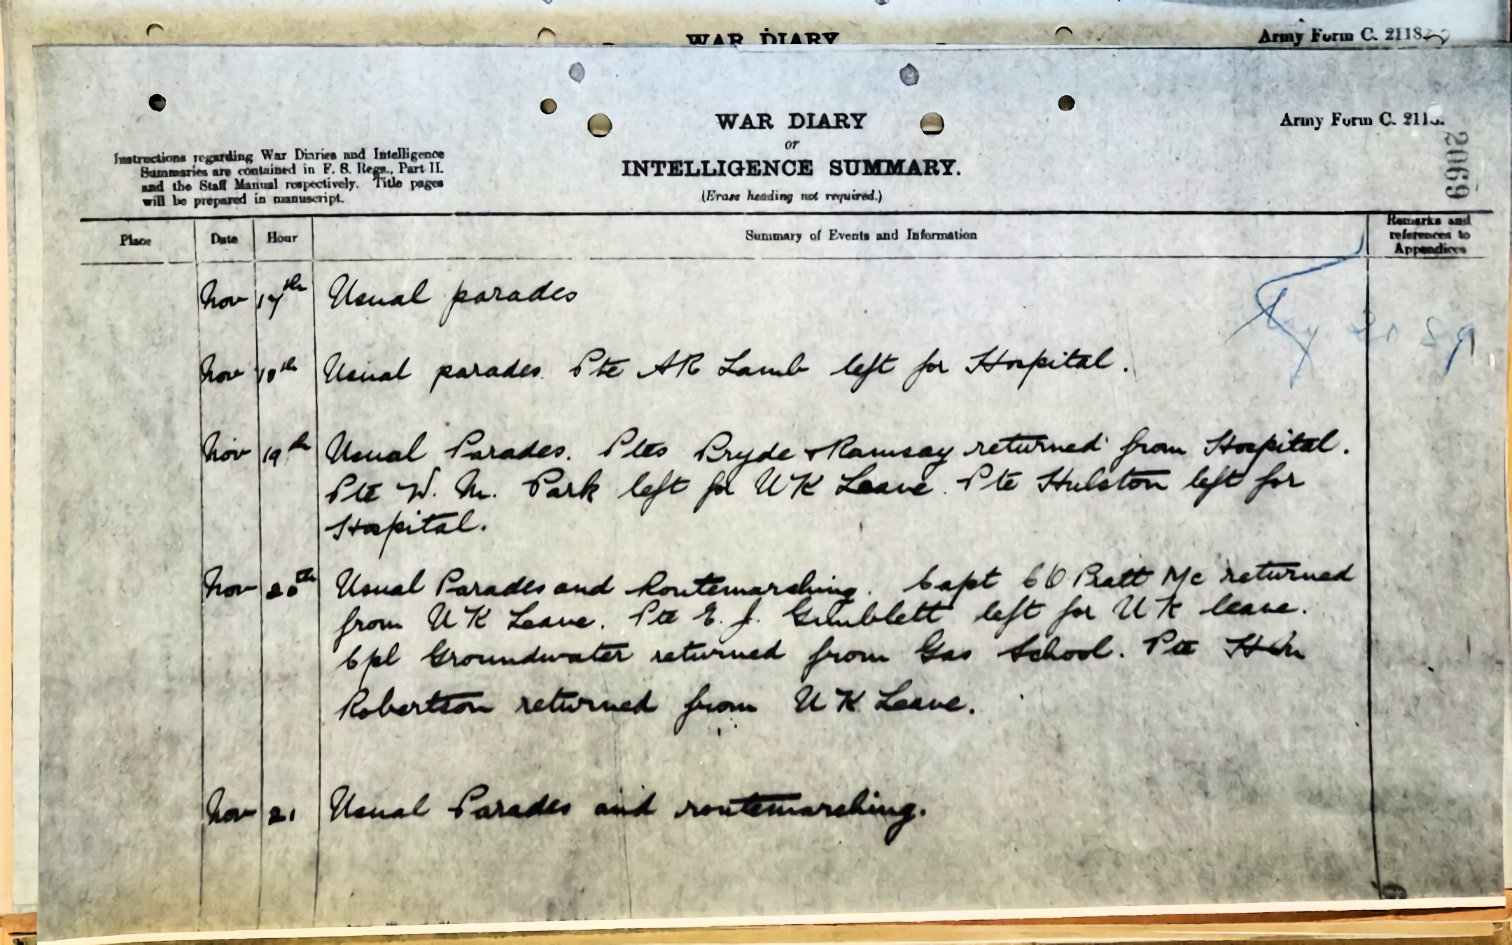 WAR DIARY
Army Form C. 2118.
WAR DIARY
or
INTELLIGENCE SUMMARY.
(Erase heading not required.)
Army Form C. 211
2069
Instructions regarding War Diaries and Intelligence
Summaries are contained in F. S. Regs., Part II.
and the Staff Manual respectively. Title pages
will be prepared in manuscript.
Place Date Hour Summary of Events and Information Remarks and
references to
Appendices
Nov 17th Usual parades
Nov 18th Usual parades. Pte AR Lamb left for Hospital.
Nov 19th Usual Parades. Ptes Bryde & Ramsay returned from Hospital.
Pte W. M. Park left for UK Leave. Pte Hulston left for
Hospital.
Nov 20th Usual Parades and Routemarching. Capt CO Pratt Mc returned
from UK Leave. Pte E. J. left for UK leave.
Cpl Groundwater returned from Gas School. Pte
Robertson returned from UK Leave.
Nov 21 Usual Parades and routemarching.